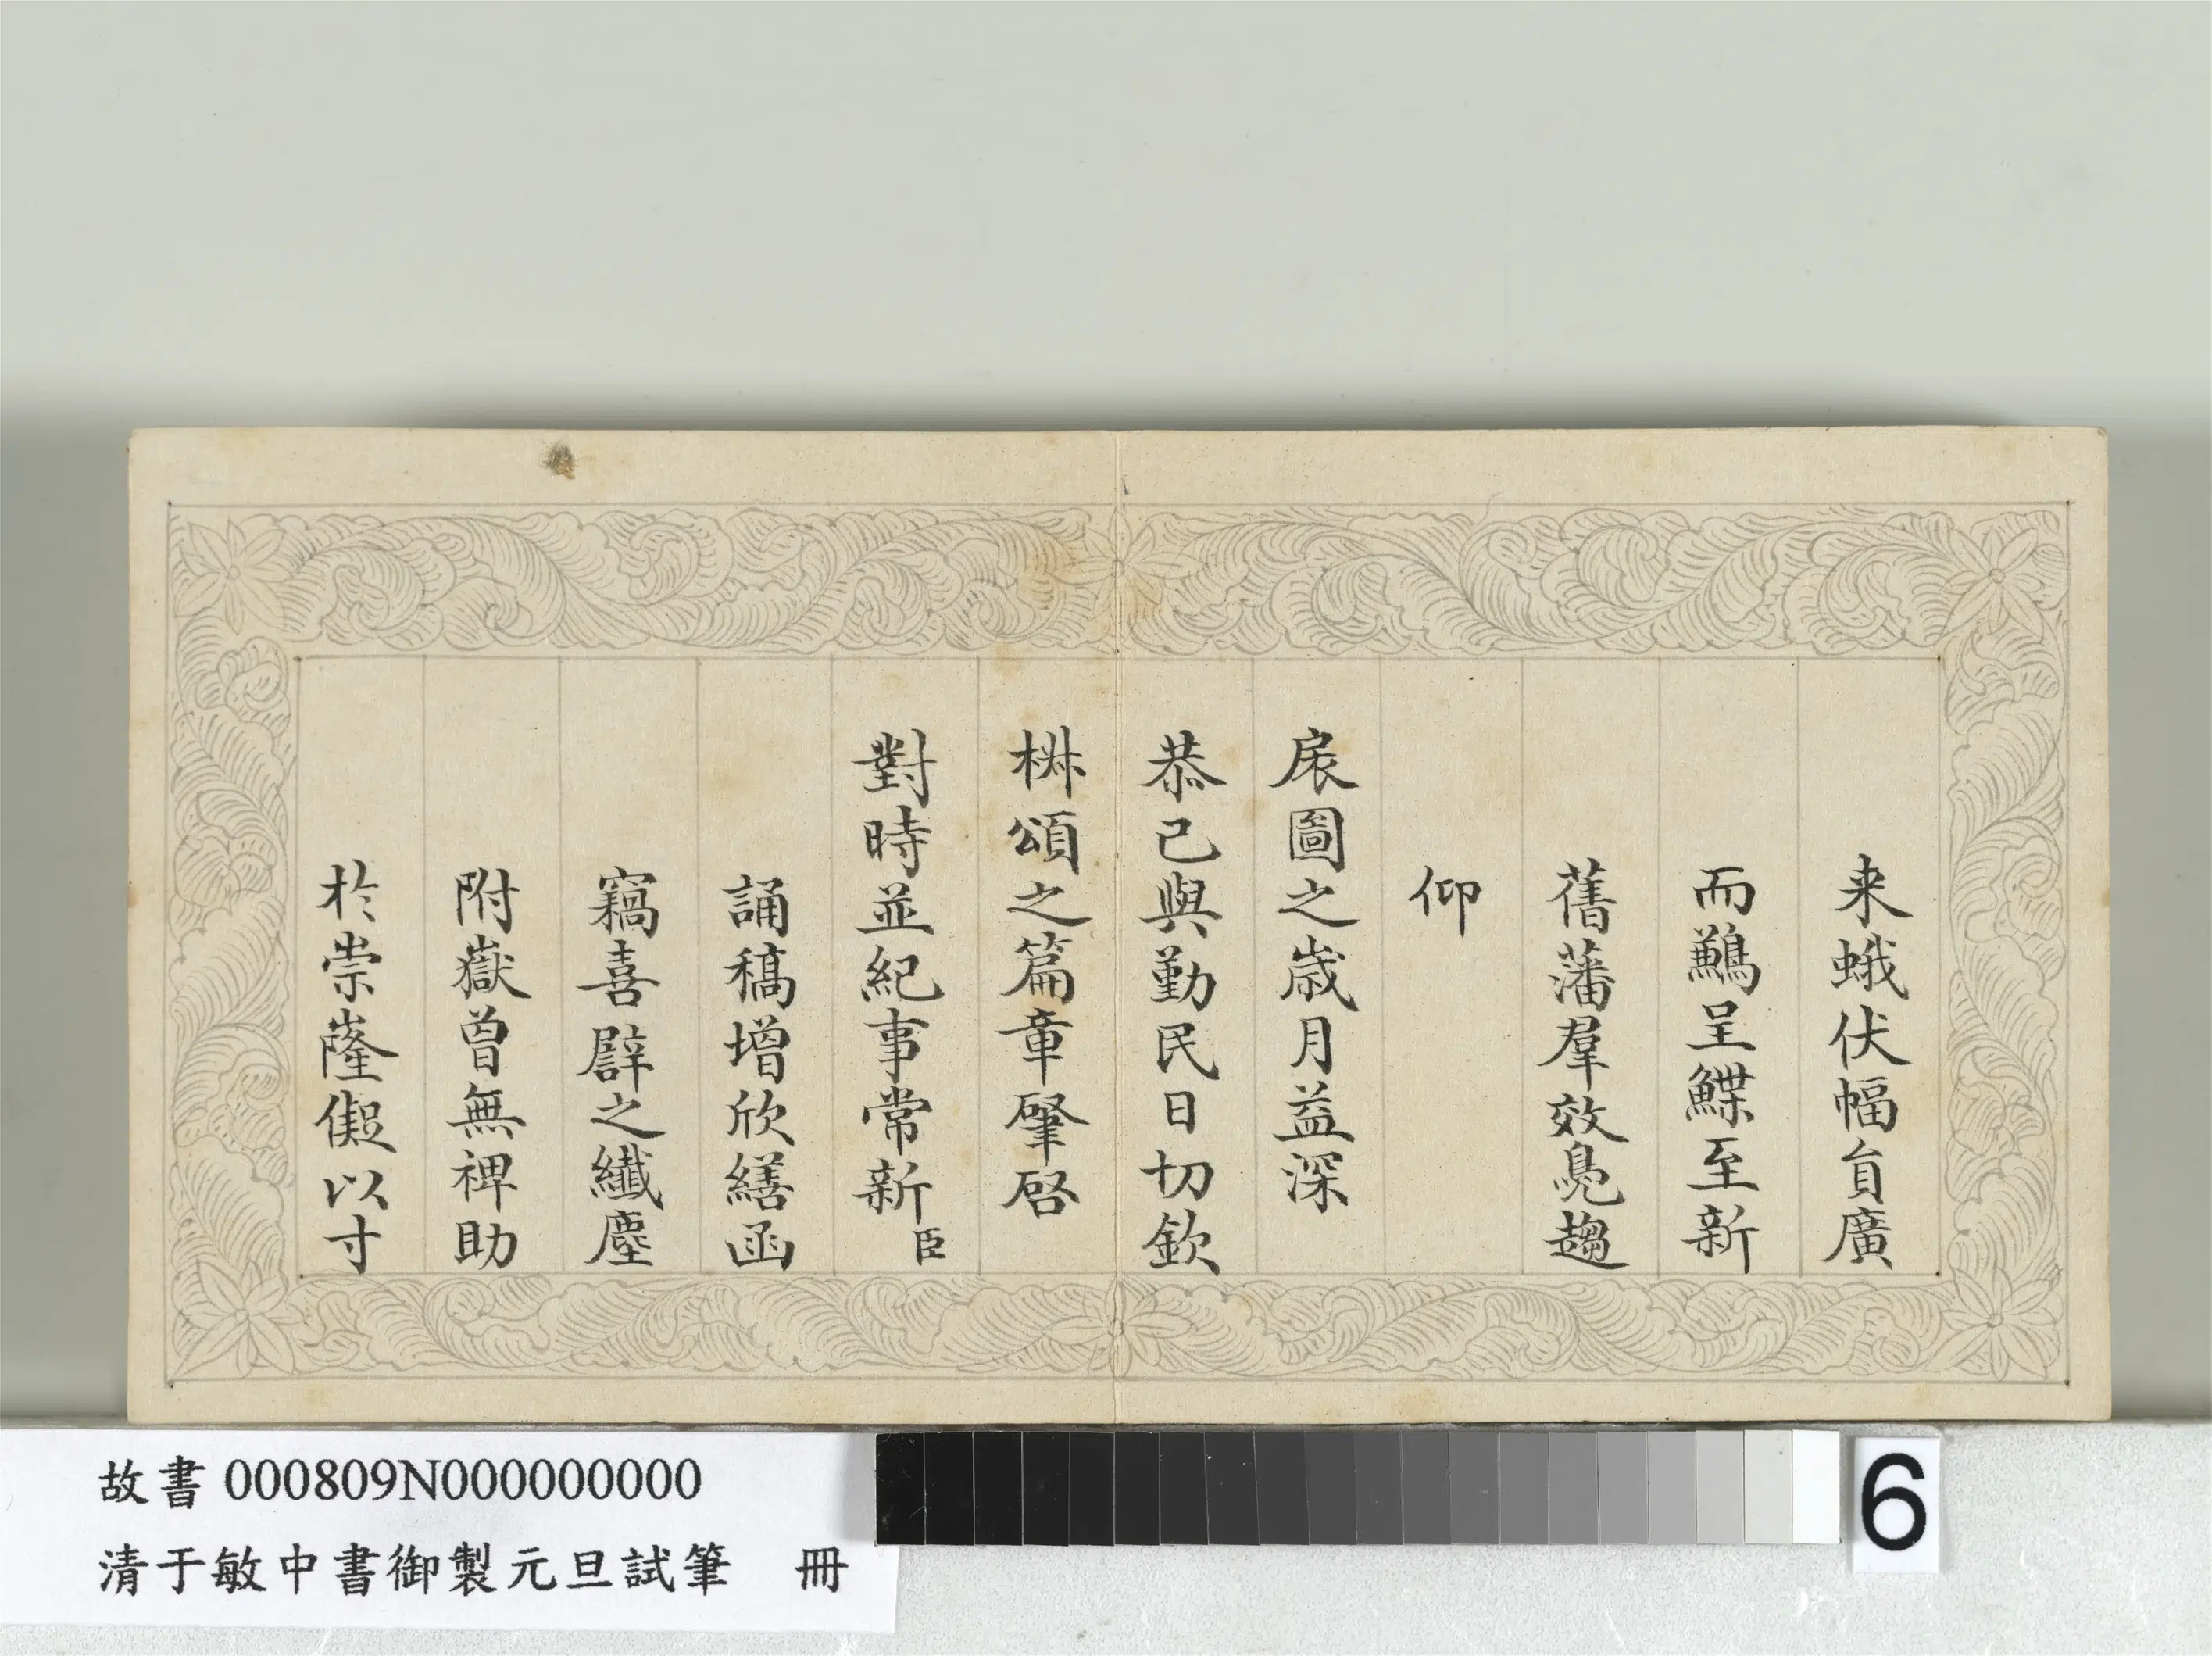 来蛾伏幅員廣
而鶼呈鰈至新
舊藩羣效鳧趨
仰
扆圖之歲月益深
恭己與勤民日切欽
椒頌之篇章肇啓
對時並紀事常新臣
誦稿增欣繕函
竊喜譬之纖塵
附嶽曾無裨助
於崇隆儗以寸
故書000809N000000000
清于敏中書御製元旦試筆 冊
6